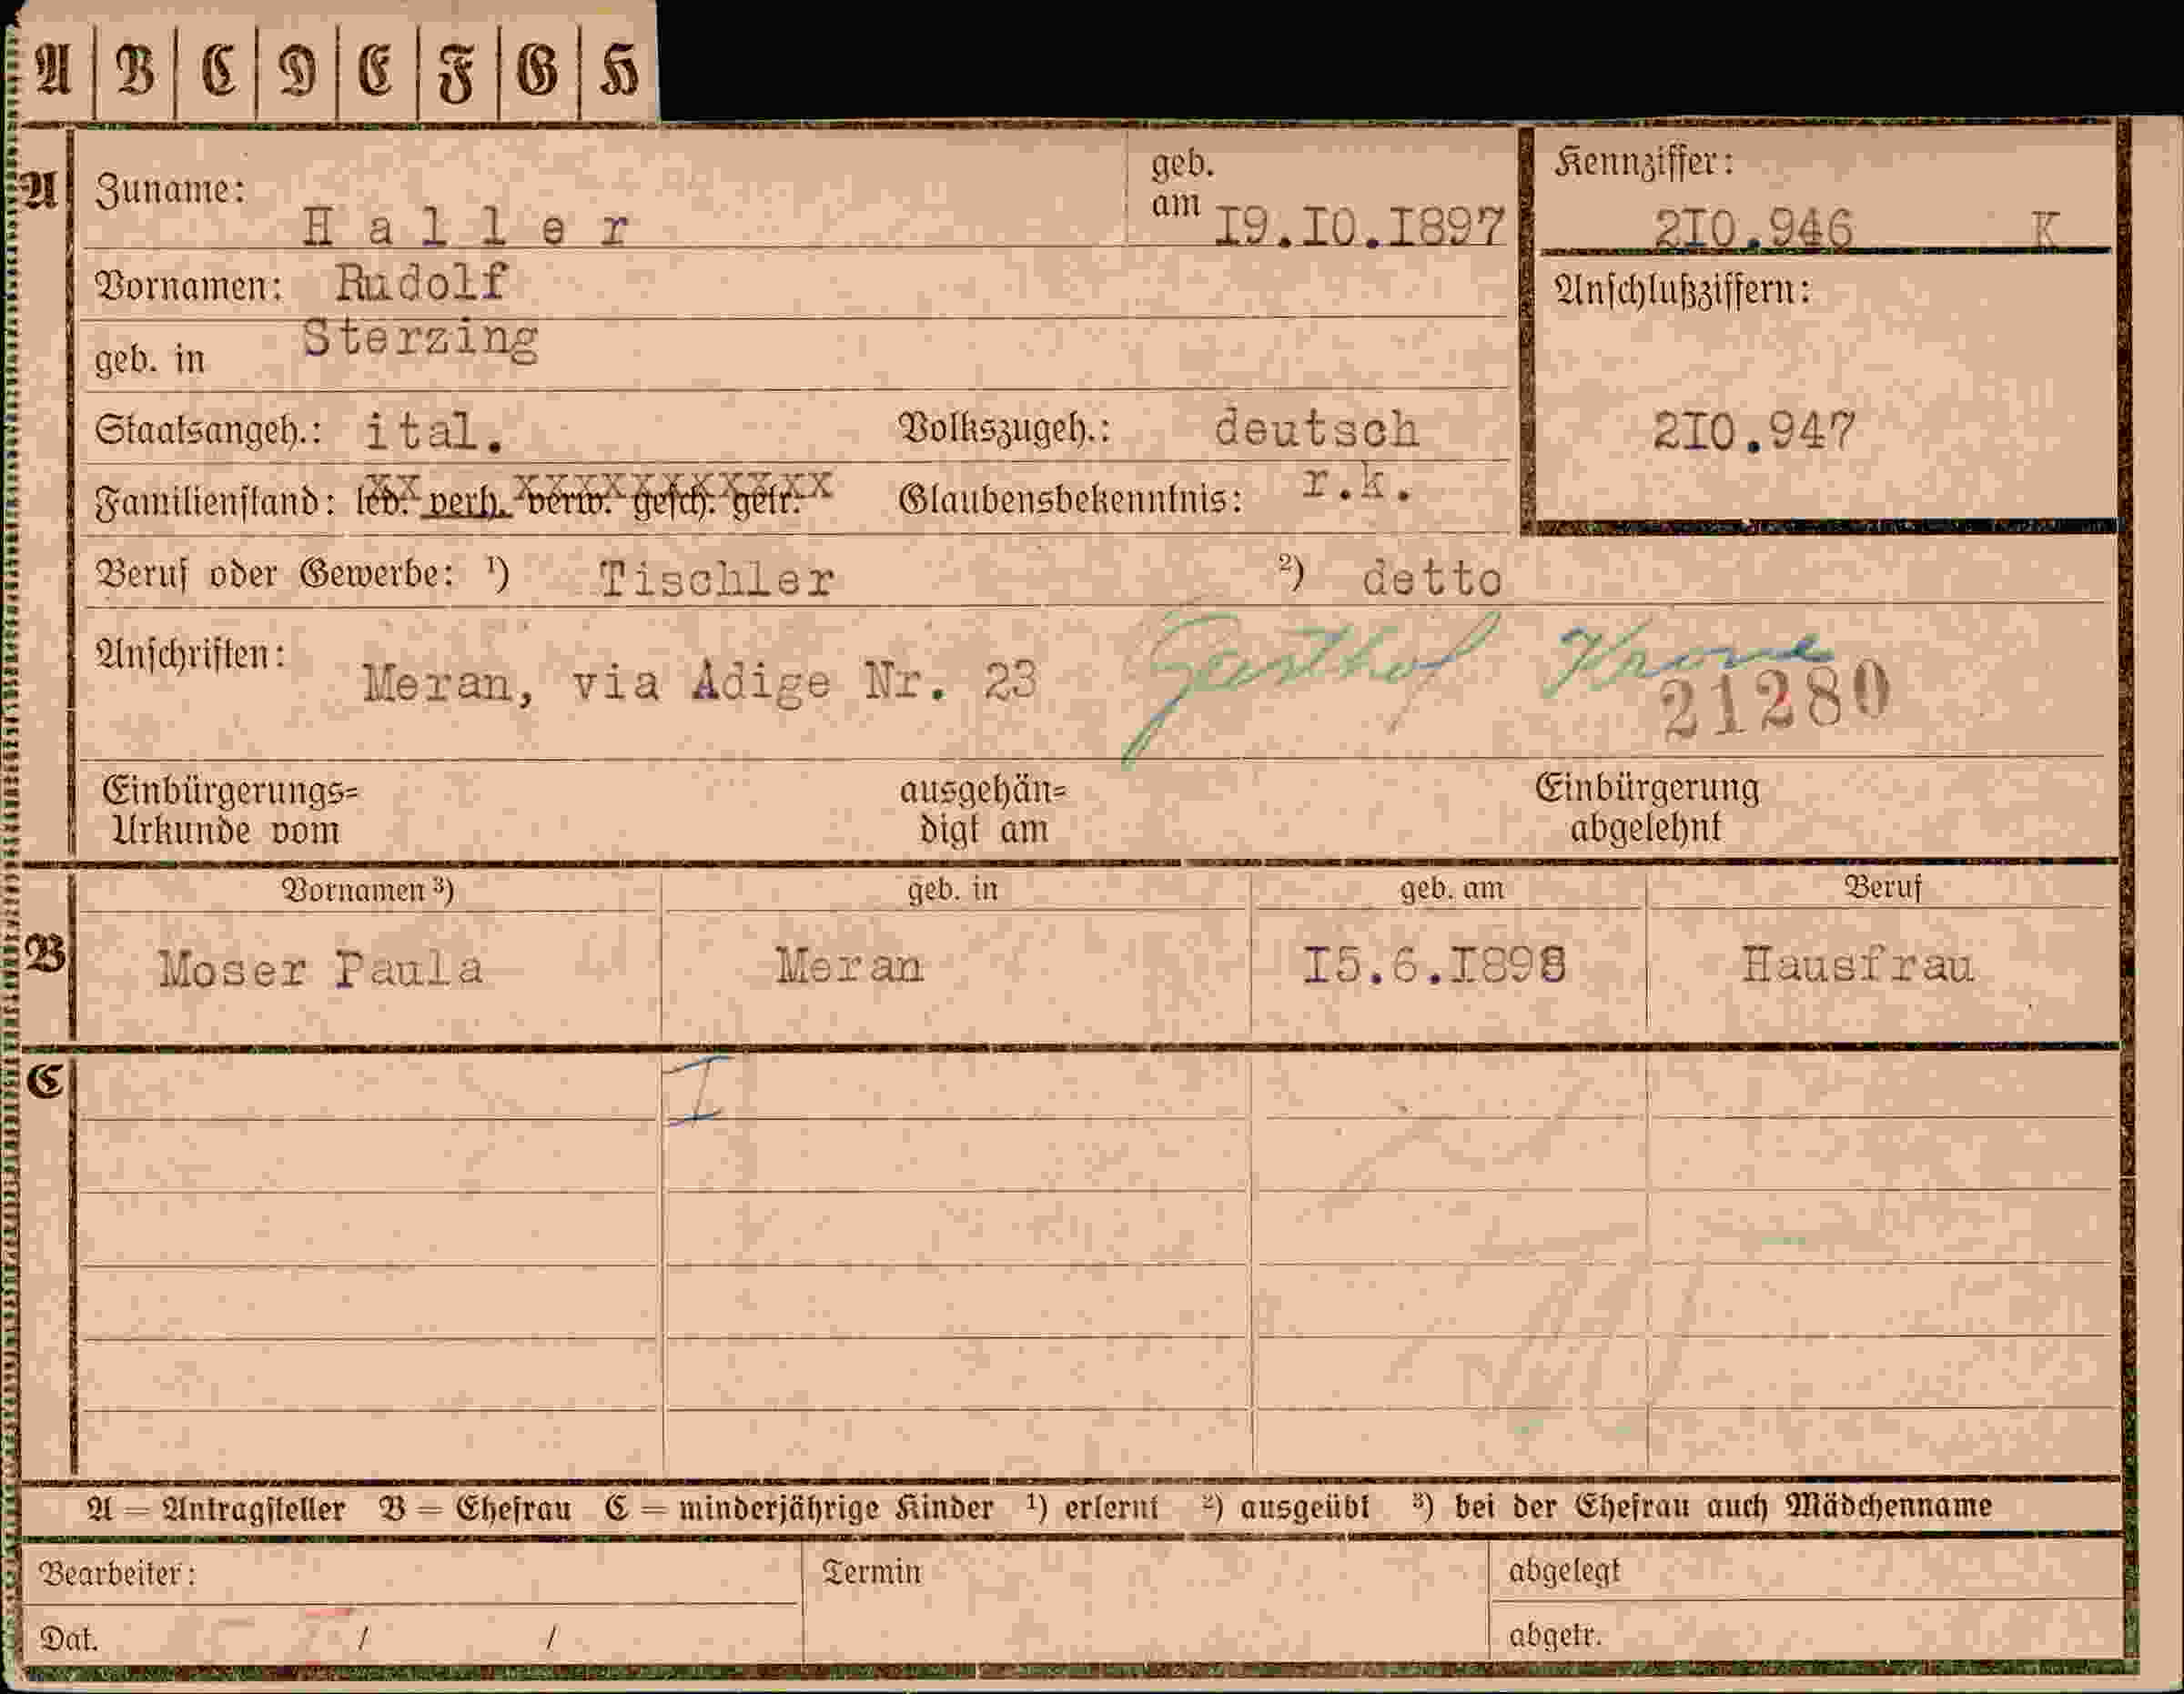 A B C D E F G H
A Zuname: Haller geb. am 19.10.1897 Kennziffer: 210.946 K
Vornamen: Rudolf Anschlußziffern:
geb. in Sterzing
Staatsangeh.: ital. Volkszugeh.: deutsch 210.947
Familienstand: led. verh. verw. gesch. getr. Glaubensbekenntnis: r.k.
Beruf oder Gewerbe: ¹) Tischler ²) detto
Anschriften: Meran, via Adige Nr. 23 Gasthof Krone
21280
Einbürgerungs= ausgehän= Einbürgerung
Urkunde vom digt am abgelehnt
Vornamen ³) geb. in geb. am Beruf
B Moser Paula Meran 15.6.1898 Hausfrau
C I
A = Antragsteller B = Ehefrau C = minderjährige Kinder ¹) erlernt ²) ausgeübt ³) bei der Ehefrau auch Mädchenname
Bearbeiter: Termin abgelegt
Dat. / / abgetr.